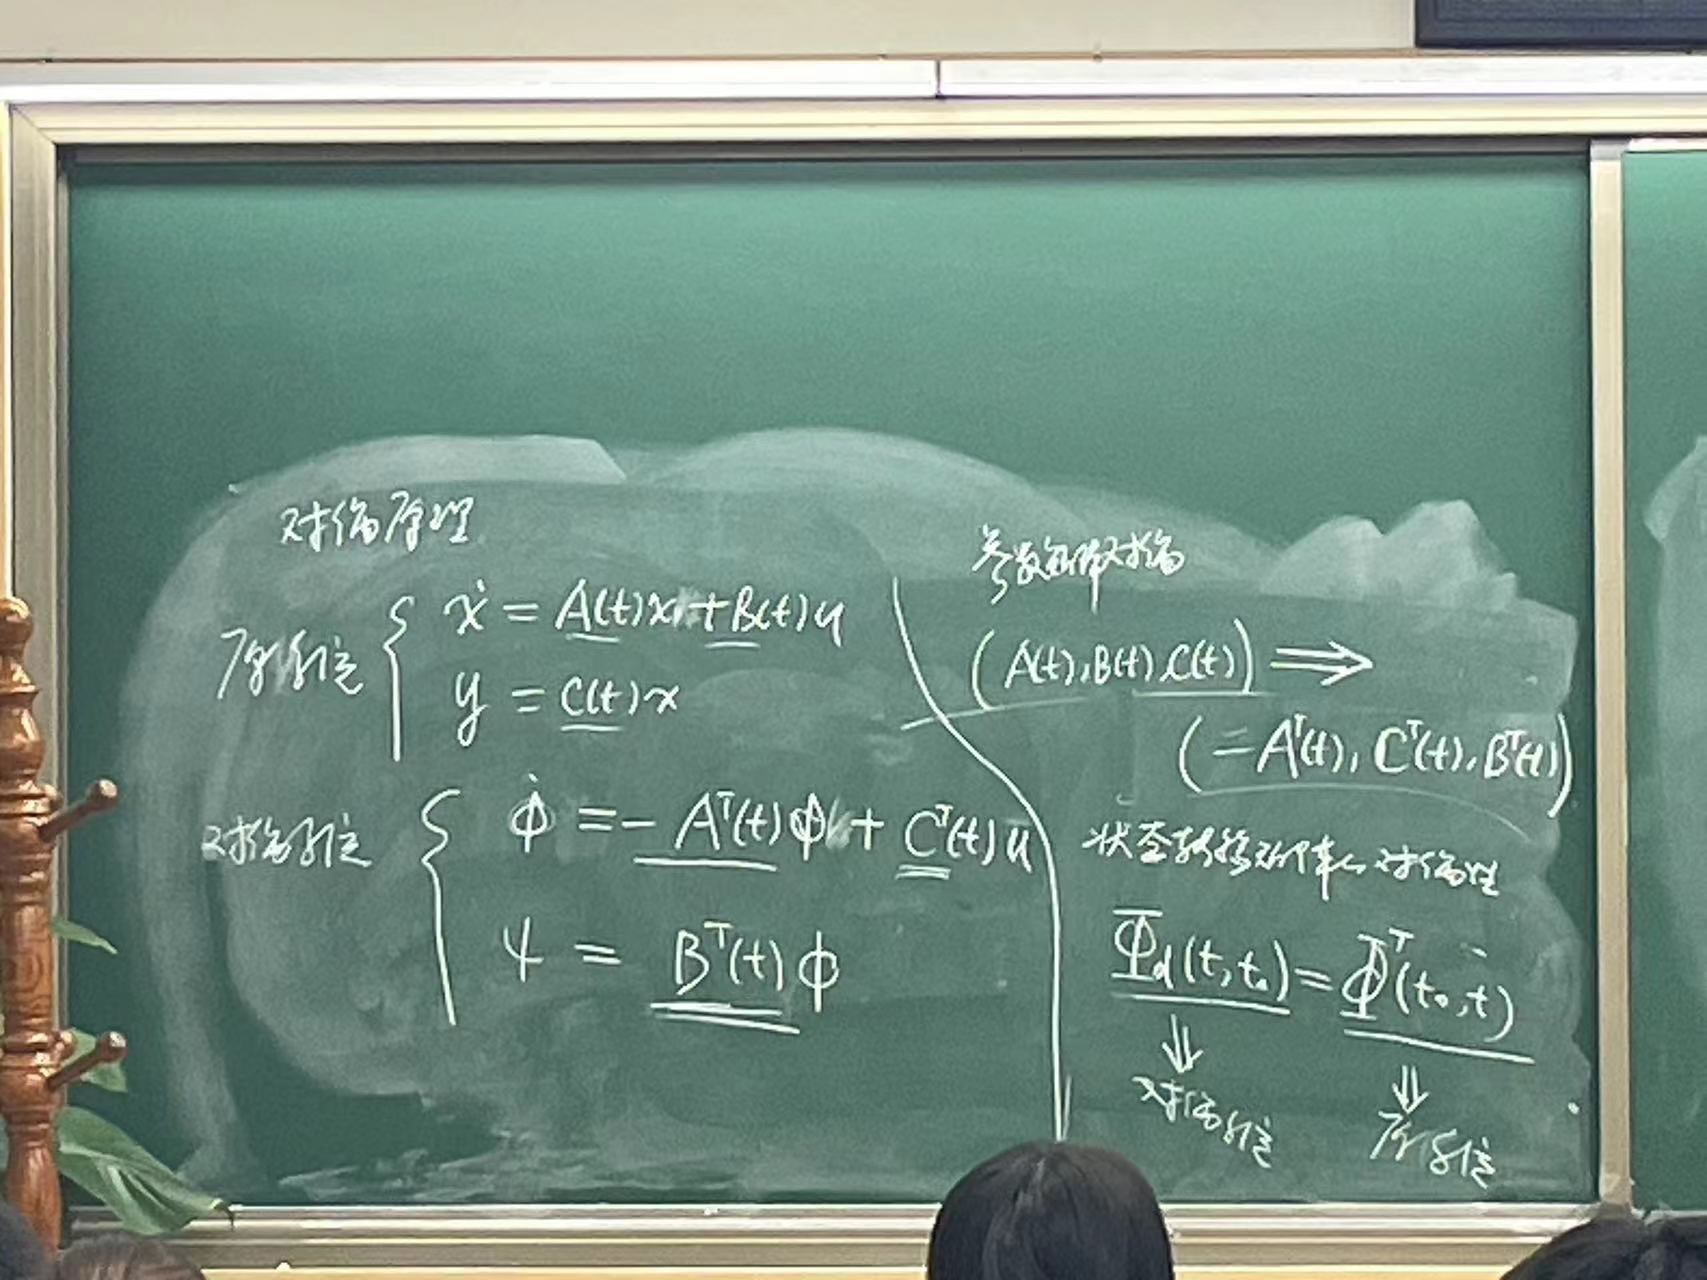 对偶原理
原系统
ẋ = A(t)x + B(t)u
y = C(t)x
对偶系统
ϕ̇ = -Aᵀ(t)ϕ + Cᵀ(t)u
ψ = Bᵀ(t)ϕ
参数矩阵对偶
(A(t), B(t), C(t)) ⟹
(-Aᵀ(t), Cᵀ(t), Bᵀ(t))
状态转移矩阵的对偶性
Φd(t, t₀) = Φᵀ(t₀, t)
⇓ ⇓
对偶系统 原系统